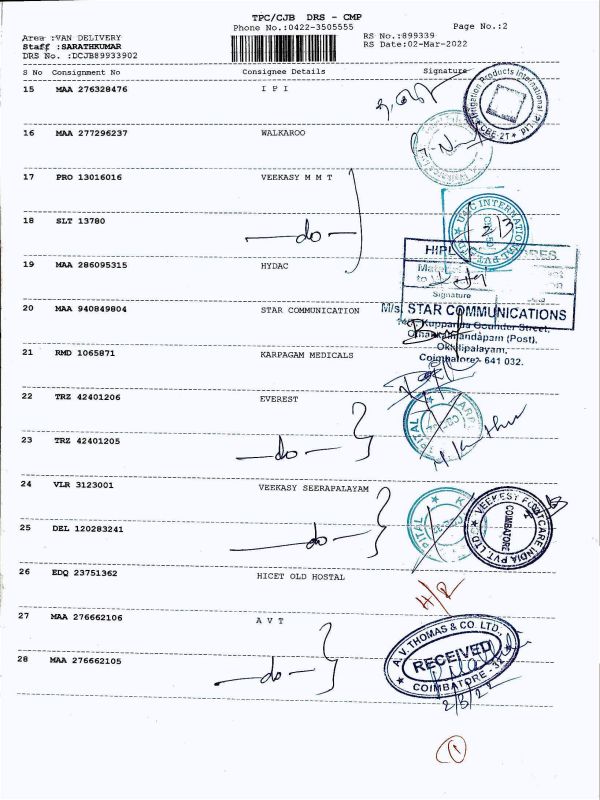 TPC/CJB DRS - CMP
Phone No.:0422-3505555
Page No.:2
Area :VAN DELIVERY
RS No.:899339
Staff :SARATHKUMAR
RS Date:02-Mar-2022
DRS No. :DCJB89933902
S No Consignment No Consignee Details Signature
15 MAA 276328476 I P I
16 MAA 277296237 WALKAROO
17 PRO 13016016 VEEKASY M M T
18 SLT 13780 do
19 MAA 286095315 HYDAC
20 MAA 940849804 STAR COMMUNICATION
21 RMD 1065871 KARPAGAM MEDICALS
22 TRZ 42401206 EVEREST
23 TRZ 42401205 do
24 VLR 3123001 VEEKASY SEERAPALAYAM
25 DEL 120283241 do
26 EDQ 23751362 HICET OLD HOSTAL
27 MAA 276662106 A V T
28 MAA 276662105 do
Irrigation Products International (P) Ltd
CBE-21
INTERNATIONAL
2/3
Signature
M/s. STAR COMMUNICATIONS
Kuppanda Gounder Street,
Othakkalmandapam (Post),
Okkilipalayam,
Coimbatore - 641 032.
PITAL
PITAL
VEEKESY FOOTCARE INDIA PVT. LTD.
COIMBATORE
H/R
A.V. THOMAS & CO. LTD.,
RECEIVED
COIMBATORE - 32
2/3/22
1